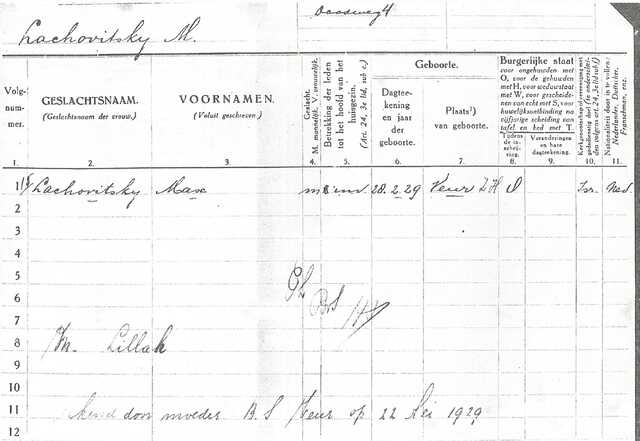 Lachovitsky M.
Volgnummer.
GESLACHTSNAAM.
(Geslachtsnaam der vrouw.)
VOORNAMEN.
(Voluit geschreven)
Geslacht. M. mannelijk, V. vrouwelijk.
Betrekking der leden tot het hoofd van het huisgezin. (Art. 24, 3e lid, sub c.)
Geboorte.
Dagteekening en jaar der geboorte.
Plaats¹) van geboorte.
Burgerlijke staat
voor ongehuwden met
O, voor de gehuwden
met H, voor weduwstaat
met W, voor gescheidenen
van echt met S, voor
huwelijksontbinding na
vijfjarige scheiding van
tafel en bed met T.
Tijdens de inschrijving.
Veranderingen en hare dagteekening.
Nationaliteit door in te vullen: Nederlander, Duitscher, Franschman, enz.
1. 2. 3. 4. 5. 6. 7. 8. 9. 10. 11.
1 Lachovitsky Max m 28.2.29 Veur Z.H Isr. Ned.
2
3
4
5
6
7
8 Lillak
9
10
11 door moeder B.S Veur op 22 Mei 1929
12